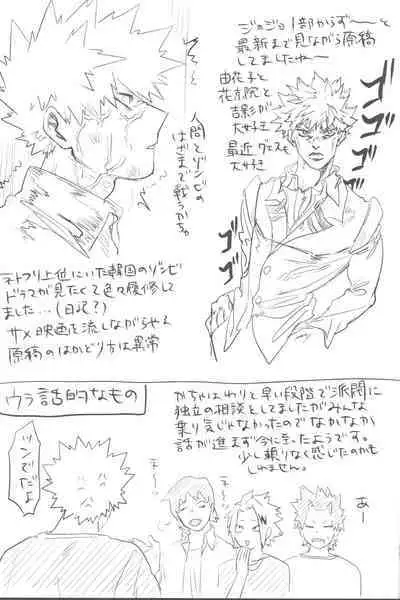 ジョジョ1部からず〜〜っと
最新まで見ながら原稿
してましたね〜
由花子と
花京院と
吉影が
大好き
最近グェスも
大好き
ゴゴゴ
ゴゴゴ
人間とゾンビの
はざまで戦うかっちゃ
ネトフリ上位にいた韓国のゾンビ
ドラマが見たくて色々履修して
ました…(日記?)
サメ映画を流しながらやる
原稿のはかどり方は異常
ウラ話的なもの
かちゃはわりと早い段階で派閥に
独立の相談としてましたがみんな
乗り気じゃなかったのでなかなか
話が進まず今に至ったようです。
少し頼りなく感じたのかも
しれません。
ツンでだよ
え〜
え〜
あー